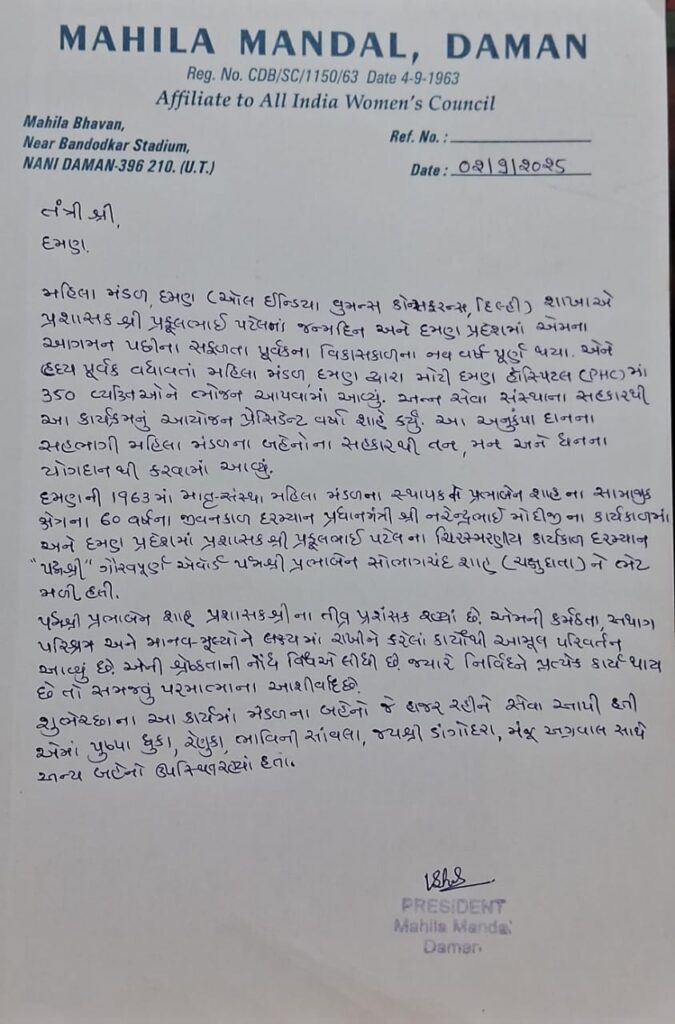 MAHILA MANDAL, DAMAN
Reg. No. CDB/SC/1150/63 Date 4-9-1963
Affiliate to All India Women's Council
Mahila Bhavan,
Near Bandodkar Stadium,
NANI DAMAN-396 210. (U.T.)
Ref. No. :
Date : 02/9/2025
તંત્રી શ્રી,
દમણ.
મહિલા મંડળ, દમણ (ઓલ ઈન્ડિયા વુમન્સ કોન્ફરન્સ, દિલ્હી) શાખાએ
પ્રશાસક શ્રી પ્રફુલભાઈ પટેલનાં જન્મદિન અને દમણ પ્રદેશમાં એમના
આગમન પછીના સફળતા પૂર્વકના વિકાસકાળના નવ વર્ષ પૂર્ણ થયા. એને
હૃદય પૂર્વક વધાવતાં મહિલા મંડળ દમણ દ્વારા મોટી દમણ હોસ્પિટલ (PHC) માં
350 વ્યક્તિઓને ભોજન આપવામાં આવ્યું. અન્ન સેવા સંસ્થાના સહકારથી
આ કાર્યક્રમનું આયોજન પ્રેસિડેન્ટ વર્ષા શાહે કર્યું. આ અનુકંપા દાનના
સહભાગી મહિલા મંડળના બહેનોના સહકારથી તન, મન અને ધનના
યોગદાનથી કરવામાં આવ્યું.
દમણની 1963માં માતૃ-સંસ્થા મહિલા મંડળના સ્થાપક પ્રભાબેન શાહના સામાજીક
ક્ષેત્રના 60 વર્ષના જીવનકાળ દરમ્યાન પ્રધાનમંત્રી શ્રી નરેન્દ્રભાઈ મોદીજીના કાર્યકાળમાં
અને દમણ પ્રદેશમાં પ્રશાસકશ્રી પ્રફુલભાઈ પટેલના ચિરસ્મરણીય કાર્યકાળ દરમ્યાન
"પદ્મશ્રી" ગૌરવપૂર્ણ એવોર્ડ પદ્મશ્રી પ્રભાબેન સોભાગચંદ શાહ ને ભેટ
મળી હતી.
પદ્મશ્રી પ્રભાબેન શાહ પ્રશાસકશ્રીના તીવ્ર પ્રશંસક રહ્યાં છે. એમની કર્મઠતા, અથાગ
પરિશ્રમ અને માનવ-મૂલ્યોને લક્ષ્યમાં રાખીને કરેલાં કાર્યોથી આમૂલ પરિવર્તન
આવ્યું છે. એની શ્રેષ્ઠતાની નોંધ વિશ્વએ લીધી છે. જ્યારે નિર્વિઘ્ને પ્રત્યેક કાર્ય થાય
છે તો સમજવું પરમાત્માના આશીર્વાદ છે.
શુભેચ્છાના આ કાર્યમાં મંડળના બહેનો જે હાજર રહીને સેવા આપી હતી
એમાં પુષ્પા ધુકા, રેણુકા, ભાવિની સાંવલા, જયશ્રી ડાંગોદરા, મંજૂ અગ્રવાલ સાથે
અન્ય બહેનો ઉપસ્થિત રહ્યાં હતા.
PRESIDENT
Mahila Mandal
Daman